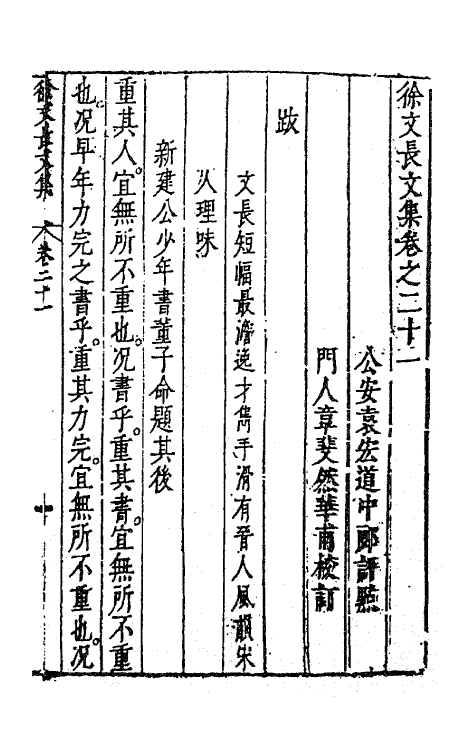 徐文長文集卷之二十二
公安袁宏道中郎評點
門人章斐然華甫校訂
跋
文長短幅最澹逸才雋手滑有晉人風韻宋
人理味
新建公少年書董子命題其後
重其人宜無所不重也况書乎重其書宜無所不重
也况早年力完之書乎重其力完宜無所不重也况
徐文長文集
卷二十一